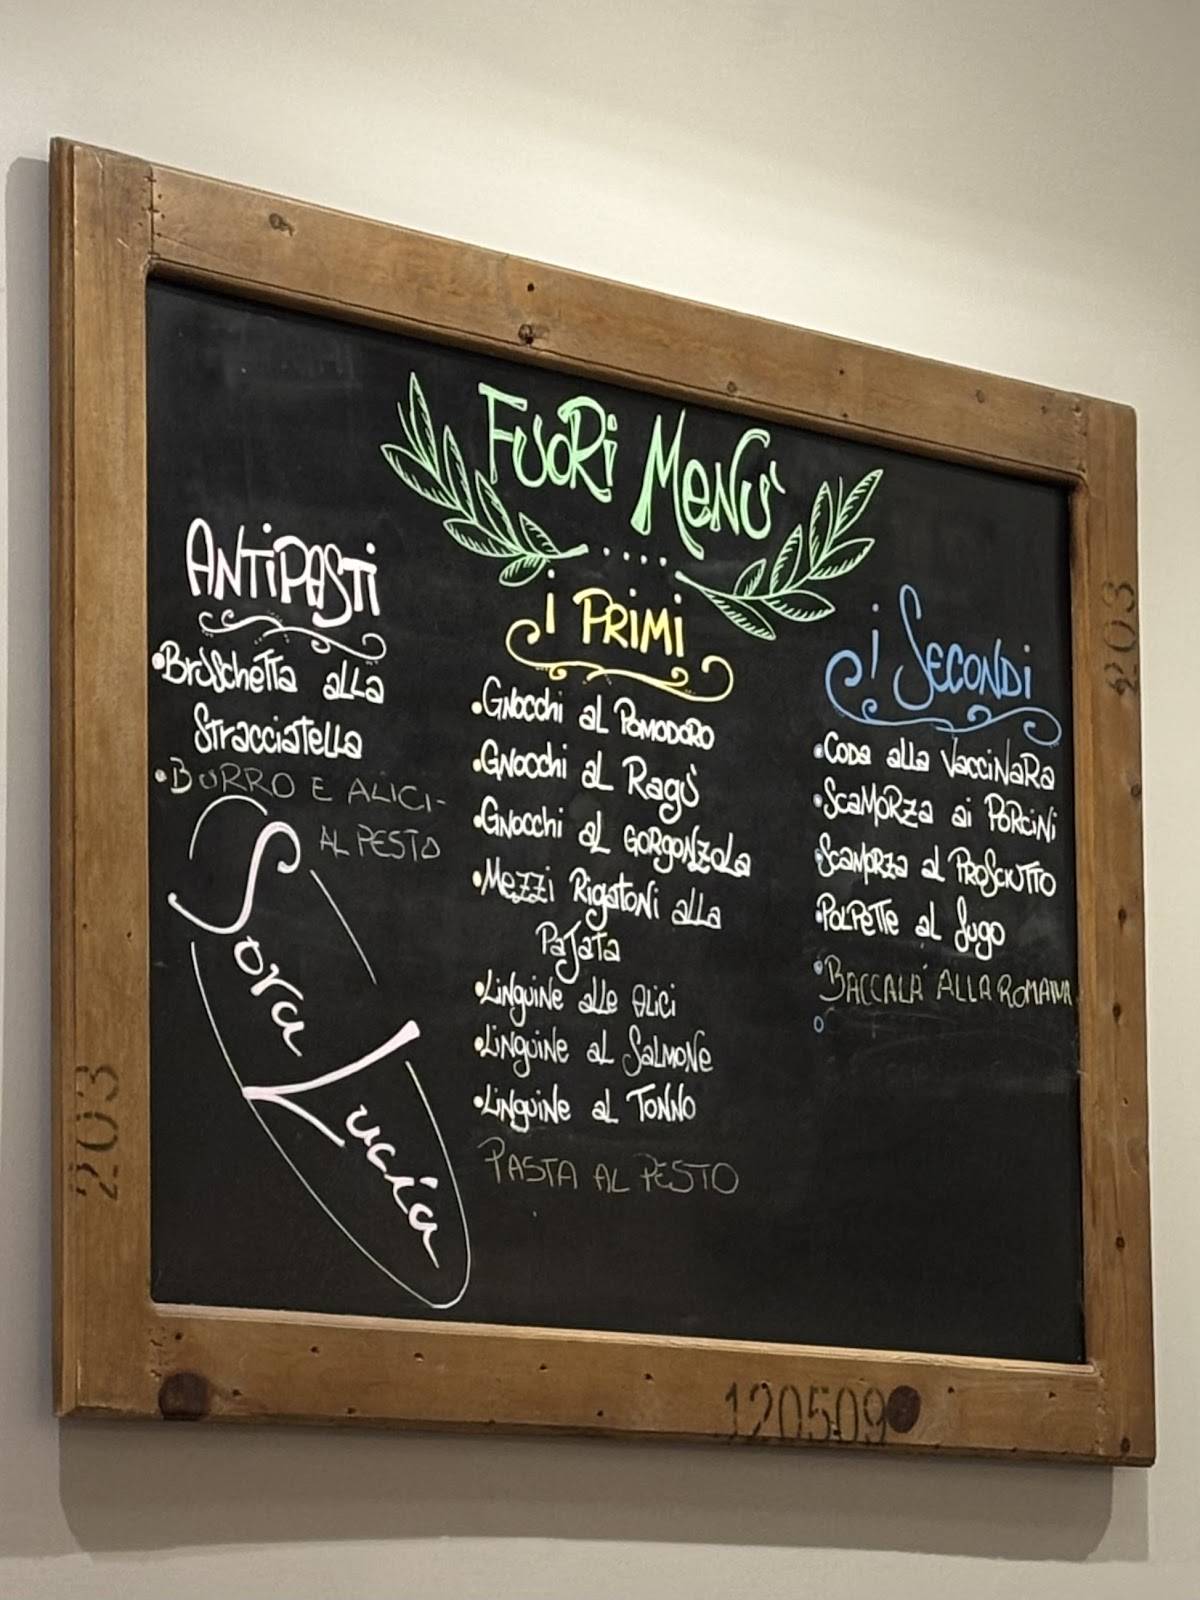 FUORI MENÙ
ANTIPASTI
•BRUSCHETTA ALLA
STRACCIATELLA
•BURRO E ALICI-
AL PESTO
Sora
Lucia
I PRIMI
•GNOCCHI AL POMODORO
•GNOCCHI AL RAGÙ
•GNOCCHI AL GORGONZOLA
•MEZZI RIGATONI ALLA
PAJATA
•LINGUINE ALLE ALICI
•LINGUINE AL SALMONE
•LINGUINE AL TONNO
PASTA AL PESTO
I SECONDI
•CODA ALLA VACCINARA
•SCAMORZA AI PORCINI
•SCAMORZA AL PROSCIUTTO
•POLPETTE AL SUGO
•BACCALA' ALLA ROMANA
203
203
120509